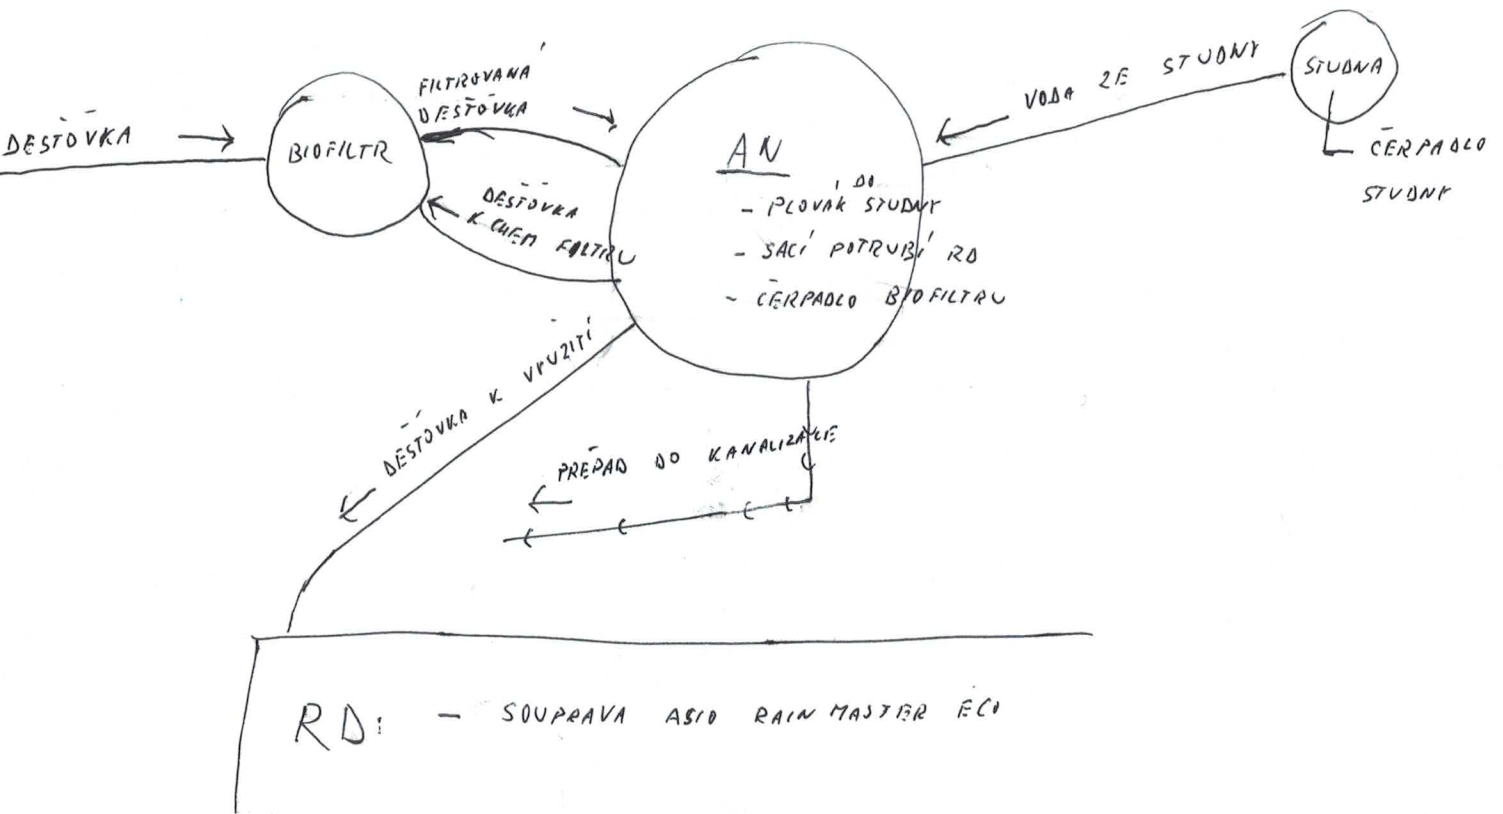 DEŠŤOVKA
BIOFILTR
FILTROVANÁ
DEŠŤOVKA
DEŠŤOVKA
K CHEM FILTRU
AN
- PLOVÁK DO STUDNY
- SACÍ POTRUBÍ RD
- ČERPADLO BIOFILTRU
VODA ZE STUDNY
STUDNA
ČERPADLO
STUDNY
DEŠŤOVKA K VYUŽITÍ
PŘEPAD DO KANALIZACE
RD: - SOUPRAVA ASIO RAIN MASTER ECO